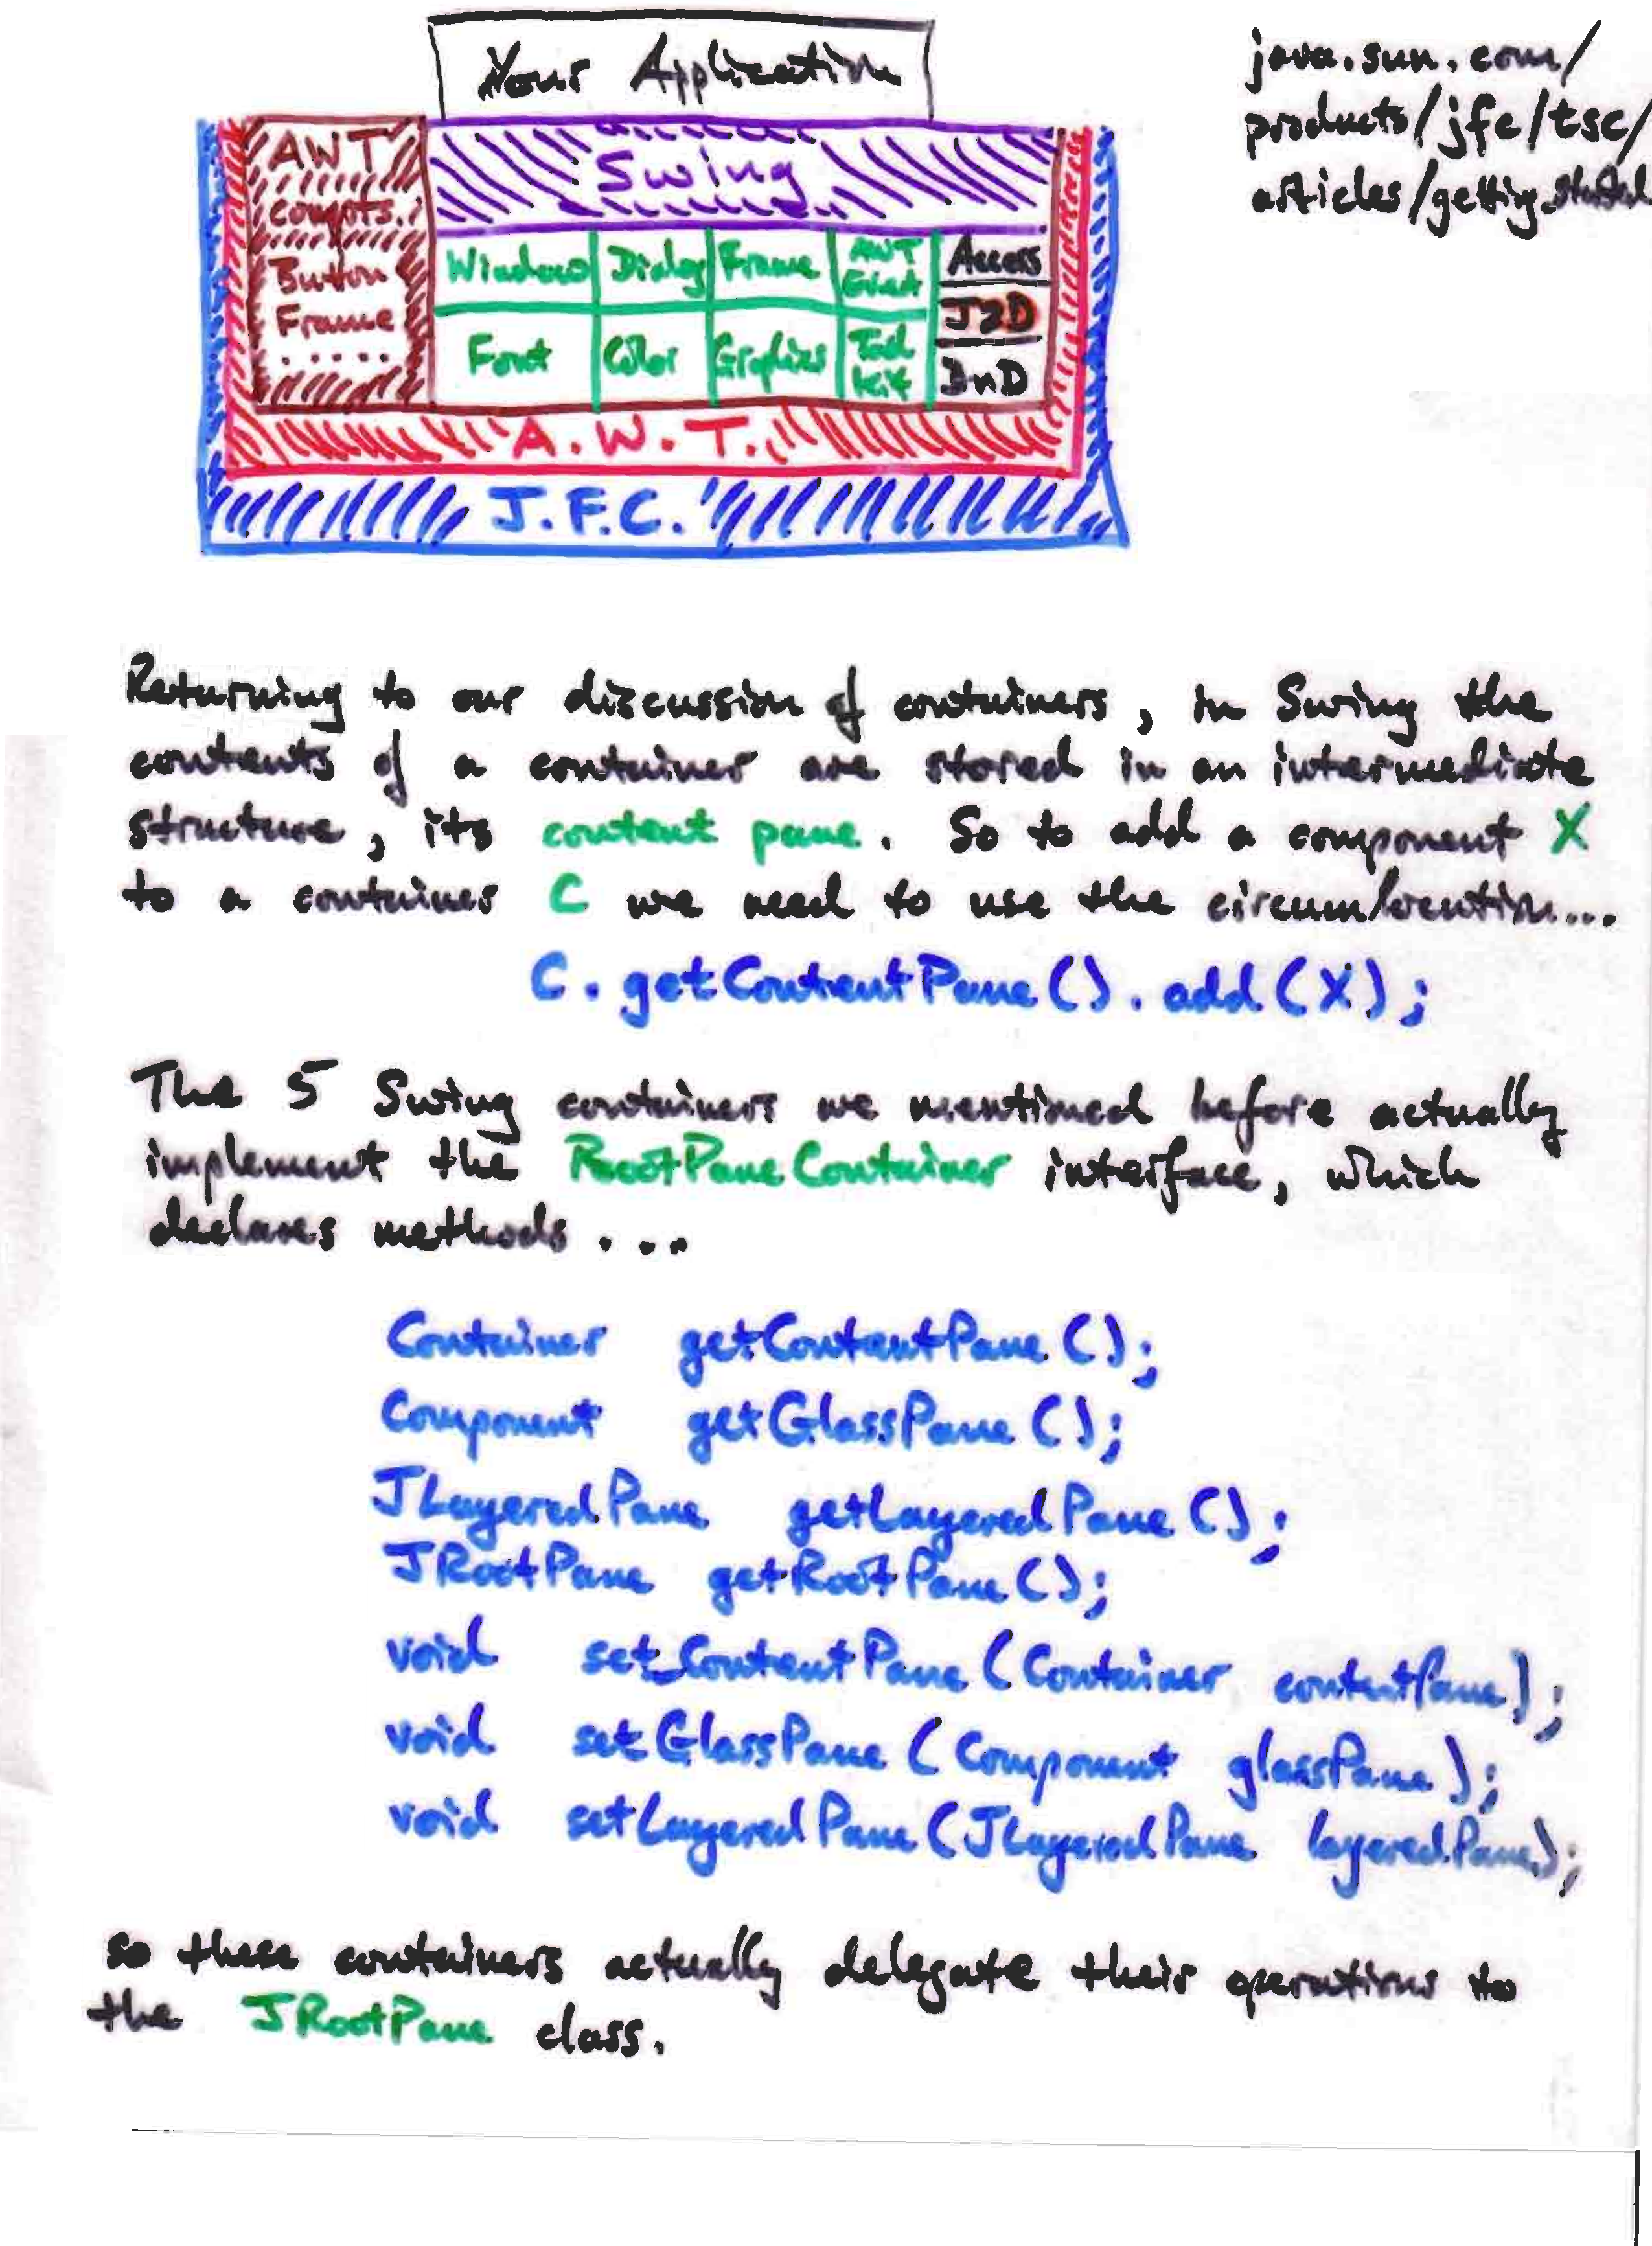 Your Application
java.sun.com/
products/jfc/tsc/
articles/getting_started
AWT
compts.
Button
Frame
.....
Swing
Window Dialog Frame AWT Event
Font Color Graphics Tool kit
Access
J2D
DnD
A.W.T.
J.F.C.
Returning to our discussion of containers, in Swing the
contents of a container are stored in an intermediate
structure, its content pane. So to add a component X
to a container C we need to use the circumlocution...
C.getContentPane().add(X);
The 5 Swing containers we mentioned before actually
implement the RootPaneContainer interface, which
declares methods ...
Container getContentPane();
Component getGlassPane();
JLayeredPane getLayeredPane();
JRootPane getRootPane();
void setContentPane(Container contentPane);
void setGlassPane(Component glassPane);
void setLayeredPane(JLayeredPane layeredPane);
so these containers actually delegate their operations to
the JRootPane class.